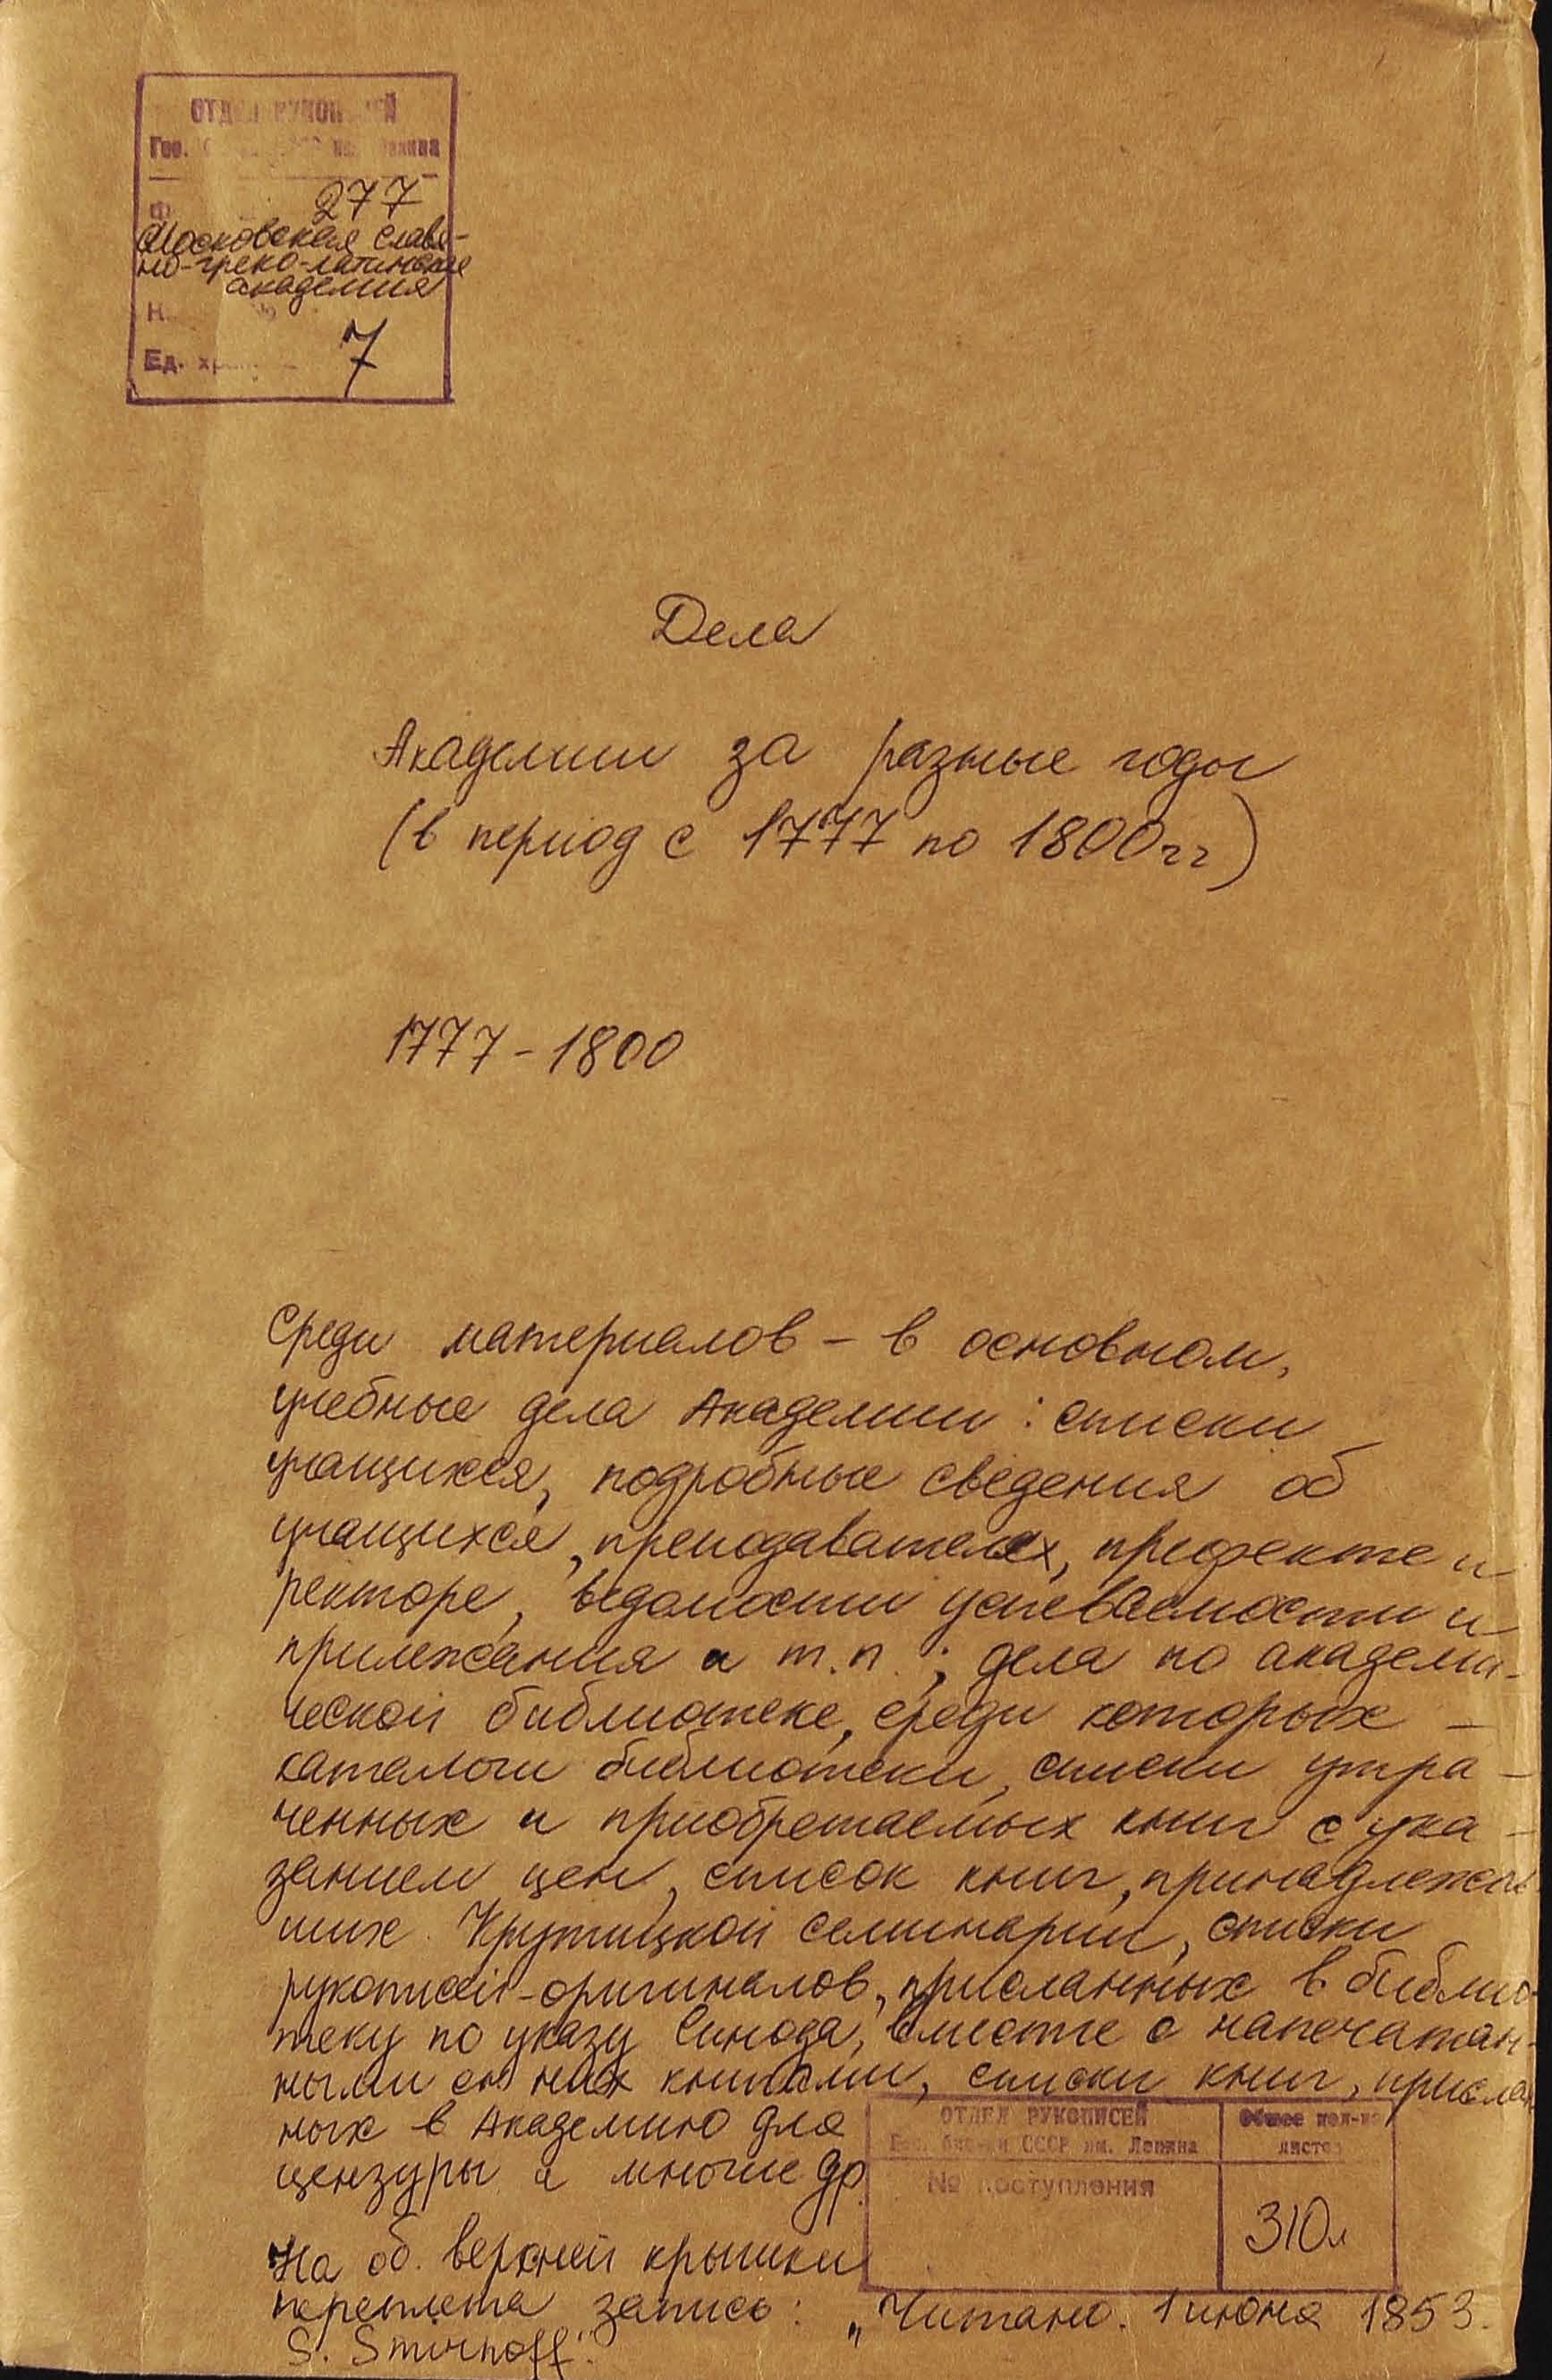 ОТДЕЛ РУКОПИСЕЙ
Гос.
Ф 277
Московская славя-
но-греко-латинская
академия
Ед. хр. 7
Дела
Академии за разные годы
(в период с 1777 по 1800 гг)
1777 - 1800
Среди материалов – в основном,
учебные дела Академии: списки
учащихся, подробные сведения об
учащихся, преподавателях, префекте и
ректоре, ведомости успеваемости и
прилежания и т.п.; дела по академи-
ческой библиотеке, среди которых –
каталоги библиотеки, списки утра-
ченных и приобретаемых книг с ука-
занием цен, список книг, принадлежав
ших Крутицкой семинарии, списки
рукописей-оригиналов, присланных в библио-
теку по указу Синода, вместе с напечатан-
ными с них книгами, списки книг, прислан
ных в Академию для
цензуры и многие др.
ОТДЕЛ РУКОПИСЕЙ
Гос. б-ки СССР им. Ленина
Общее кол-во
листов
№ поступления
310л
На об. верхней крышки
переплета запись: „Читано. 1 июня 1853.
S. Smirnoff."